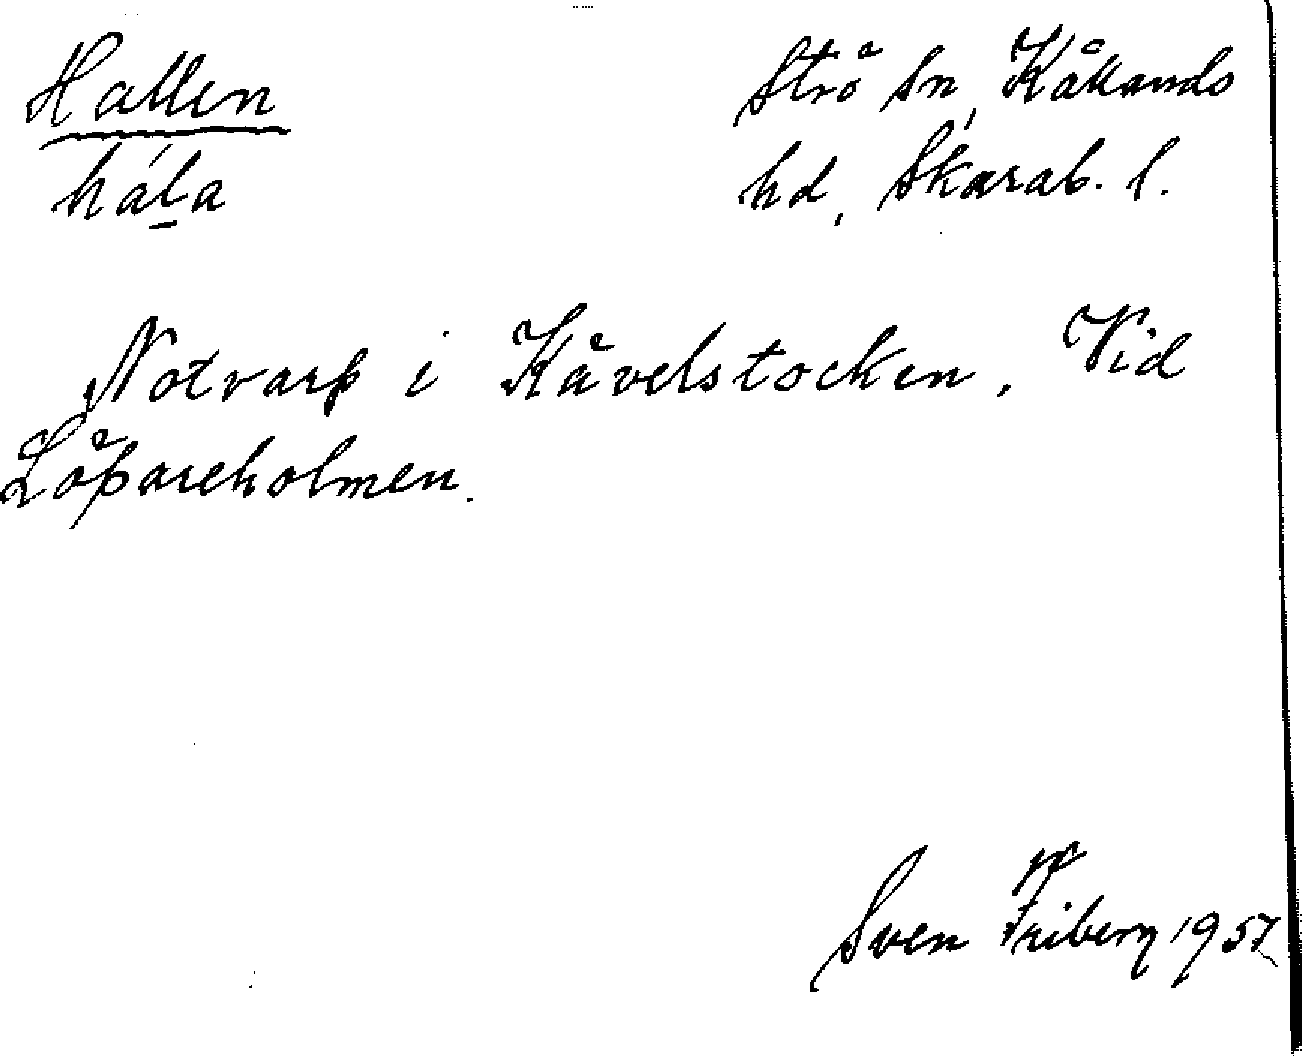 Hallen
hála
Strö sn, Kållands
hd, Skarab. l.
Notvarp i Kåvelstocken. Vid
Löpareholmen.
Sven Friberg 1957